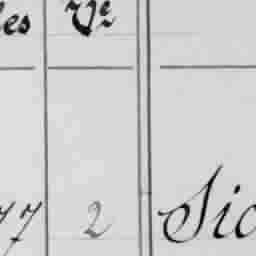 les Vᵉ
77 2 Sic